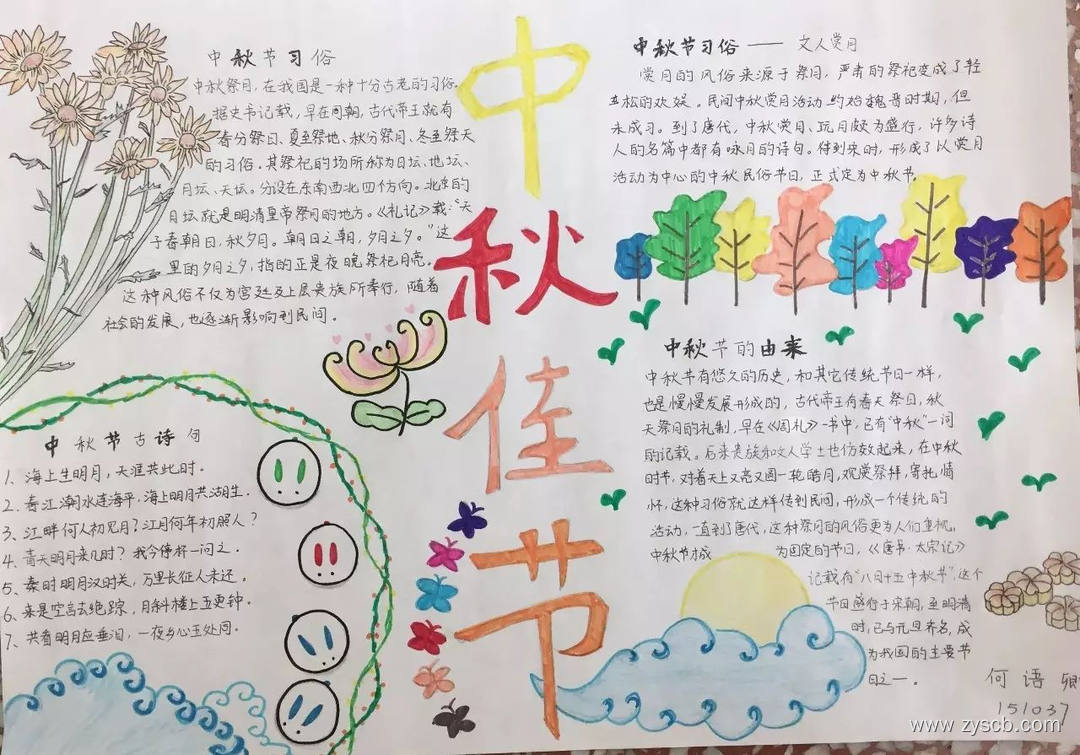 中秋节习俗
中秋祭月，在我国是一种十分古老的习俗。
据史书记载，早在周朝，古代帝王就有
春分祭日、夏至祭地、秋分祭月、冬至祭天
的习俗。其祭祀的场所称为日坛、地坛、
月坛、天坛。分设在东南西北四个方向。北京的
月坛就是明清皇帝祭月的地方。《礼记》载："天
子春朝日，秋夕月。朝日之朝，夕月之夕。"这
里的夕月之夕，指的正是夜晚祭祀月亮。
这种风俗不仅为宫廷及上层贵族所奉行，随着
社会的发展，也逐渐影响到民间。
中秋佳节
中秋节习俗——文人赏月
赏月的风俗来源于祭月，严肃的祭祀变成了轻
松的欢娱。民间中秋赏月活动约始魏晋时期，但
未成习。到了唐代，中秋赏月、玩月颇为盛行，许多诗
人的名篇中都有咏月的诗句。待到宋时，形成了以赏月
活动为中心的中秋民俗节日，正式定为中秋节。
中秋节的由来
中秋节有悠久的历史，和其它传统节日一样，
也是慢慢发展形成的，古代帝王有春天祭日，秋
天祭月的礼制，早在《周礼》一书中，已有"中秋"一词
的记载。后来贵族和文人学士也仿效起来，在中秋
时节，对着天上又亮又圆一轮皓月，观赏祭拜，寄托情
怀，这种习俗就这样传到民间，形成一个传统的
活动，一直到唐代，这种祭月的风俗更为人们重视。
中秋节才成为固定的节日，《唐书·太宗记》
记载有"八月十五中秋节"，这个
节日盛行于宋朝，至明清
时，已与元旦齐名，成
为我国的主要节
日之一。
中秋节古诗句
1、海上生明月，天涯共此时。
2、春江潮水连海平，海上明月共潮生。
3、江畔何人初见月？江月何年初照人？
4、青天明月来几时？我今停杯一问之。
5、秦时明月汉时关，万里长征人未还。
6、来是空言去绝踪，月斜楼上五更钟。
7、共看明月应垂泪，一夜乡心五处同。
何语卿
151037
www.zyscb.com